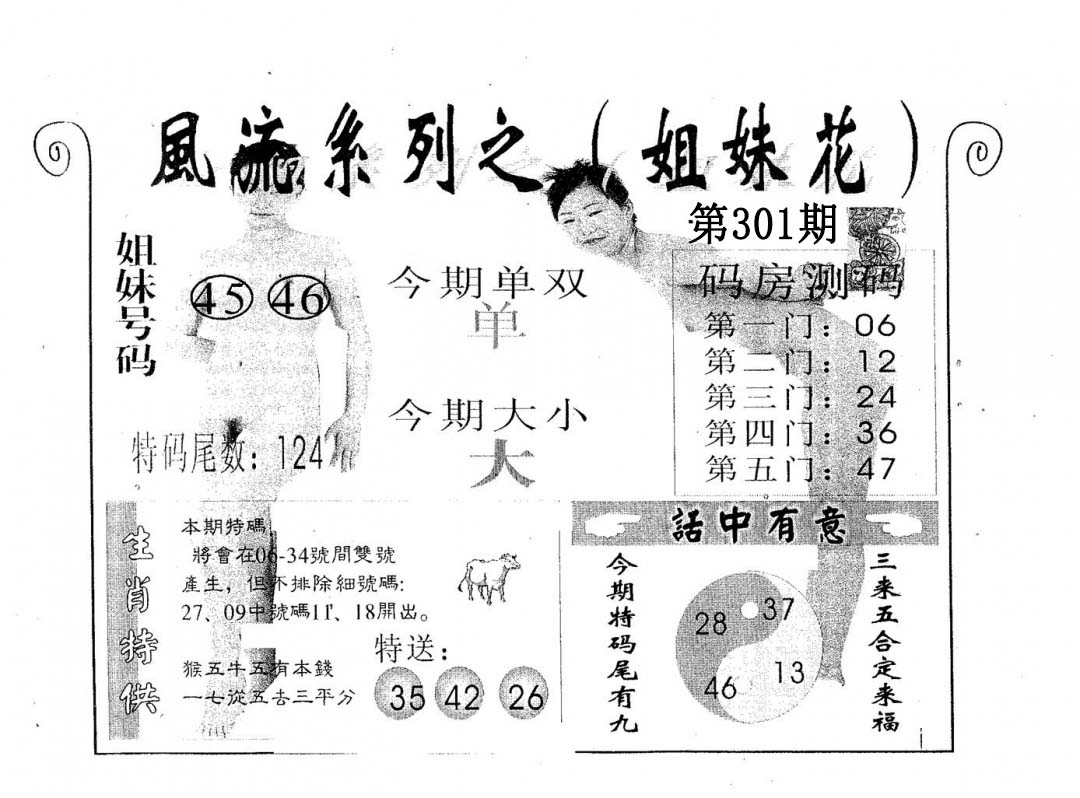 風流系列之（姐妹花）
第301期
姐妹号码
45 46
今期单双
单
今期大小
大
特码尾数：124
码房测码
第一门：06
第二门：12
第三门：24
第四门：36
第五门：47
生肖特供
本期特碼
將會在06-34號間雙號
產生，但不排除細號碼:
27、09中號碼11、18開出。
猴五牛五有本錢
一七從五去三平分
特送：
35 42 26
話中有意
今期特码尾有九
28 37
46 13
三来五合定来福